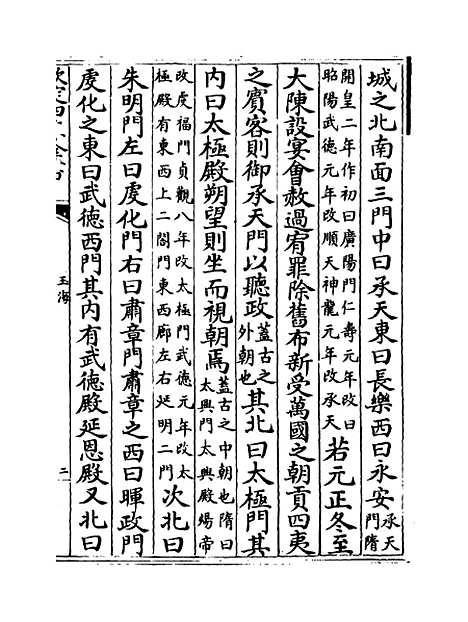 城之北南面三門中曰承天東曰長樂西曰永安承天門隋
開皇二年作初曰廣陽門仁壽元年改曰昭陽武德元年改順天神龍元年改承天若元正冬至
大陳設宴會赦過宥罪除舊布新受萬國之朝貢四夷
之賓客則御承天門以聽政蓋古之外朝也其北曰太極門其
內曰太極殿朔望則坐而視朝焉蓋古之中朝也隋曰太興門太興殿煬帝
改䖍福門貞觀八年改太極門武德元年改太極殿有東西上二閤門東西廊左右延明二門次北曰
朱明門左曰䖍化門右曰肅章門肅章之西曰暉政門
䖍化之東曰武德西門其內有武德殿延恩殿又北曰
玉海
二